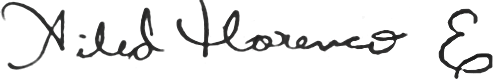 Hiled Florenco E